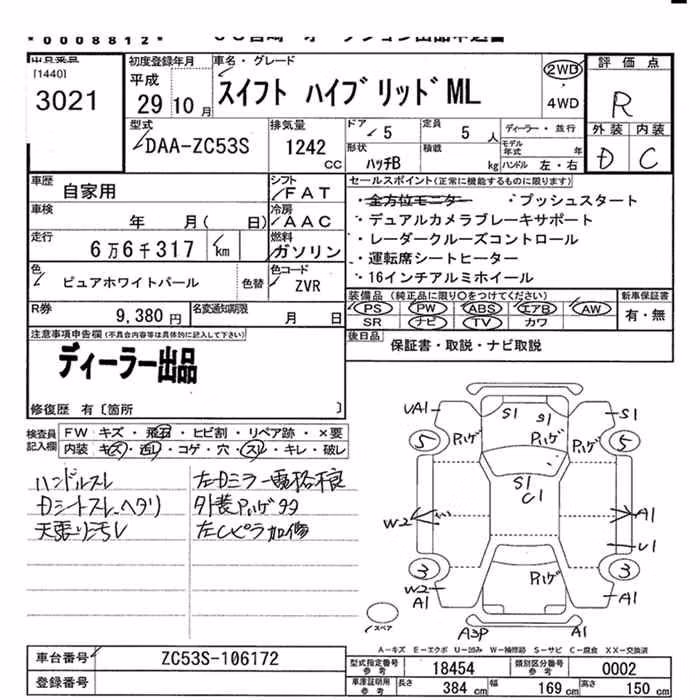 *0008812*
[1440]
3021
初度登録年月
平成
29年10月
車名・グレード
スイフト ハイブリッドML
2WD
・
4WD
評価点
R
外装 内装
D C
型式
DAA-ZC53S
排気量
1242
CC
ドア
5
定員
5人
形状
ハッチB
積載
kg
ディーラー・並行
モデル年式 年
ハンドル 左・右
車歴
自家用
シフト
FAT
車検
年 月( 日)
冷房
AAC
走行
6万6千317 km
燃料
ガソリン
色
ピュアホワイトパール
色替
色コード
ZVR
R券
9,380円
名変通知期限
月 日
セールスポイント(正常に機能するものに限ります)
・全方位モニター ・プッシュスタート
・デュアルカメラブレーキサポート
・レーダークルーズコントロール
・運転席シートヒーター
・16インチアルミホイール
装備品 (純正品に限り○をつけてください)
PS PW ABS エアB AW
SR ナビ TV カワ
新車保証書
有・無
後日品
保証書・取説・ナビ取説
注意事項申告欄(不具合内容等は具体的に記入して下さい)
ディーラー出品
修復歴 有〔箇所 〕
検査員
記入欄
FW キズ・飛石・ヒビ割・リペア跡・×要
内装 キズ・汚レ・コゲ・穴・スレ・キレ・破レ
ハンドルスレ
Dシートスレ、ヘタリ
天張り汚レ
左Dミラー電格不良
外装ハゲ多数
左Cピラ加修
UA1
S1
S1
S1
5
ハゲ
ハゲ
ハゲ
5
S1
C1
W2
A1
U1
3
3
W2
A1
ハゲ
A1
A3P
A1
スペア
A-キズ E-エクボ U-凹み W-補修跡 S-サビ C-腐食 XX-交換済
車台番号
ZC53S-106172
登録番号
型式指定番号
参考
18454
類別区分番号
参考
0002
車庫証明用
参考
長さ
384 cm
幅
169 cm
高さ
150 cm